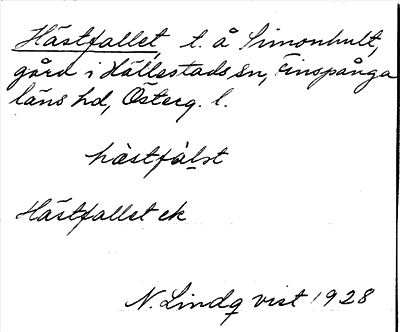 Hästfallet t. å Simonhult,
gård i Hällestads sn, Finspånga
läns hd, Österg. l.
hàstfàlət
Hästfallet ek
N. Lindqvist 1928